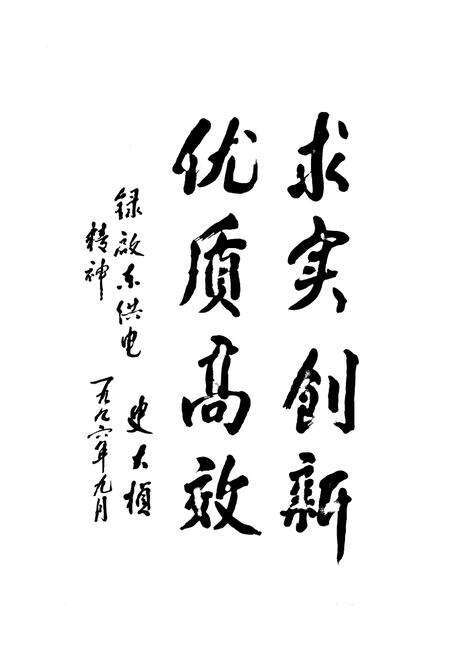 求实创新
优质高效
录启东供电
精神
史大桢
一九九六年九月